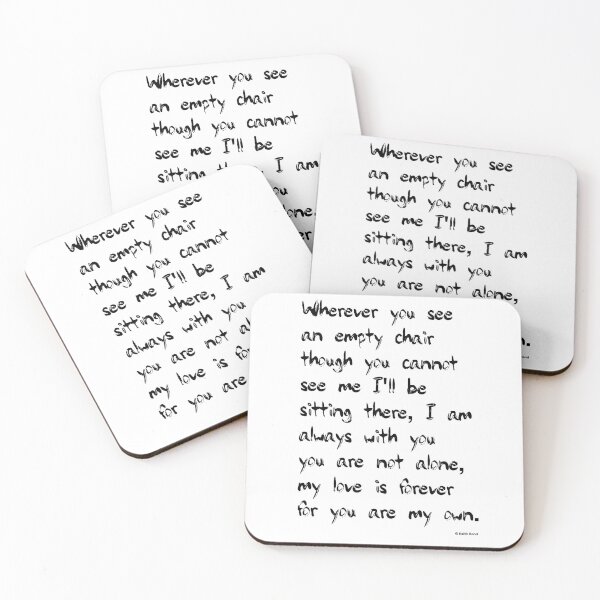 Wherever you see
an empty chair
though you cannot
see me I'll be
sitting I am
Wherever you see
an empty chair
though you cannot
see me I'll be
sitting there, I am
always with you
you are not alone,
Wherever you see
an empty chair
though you cannot
see me I'll be
sitting there, I am
always with you
you are not
my love is
for you are
Wherever you see
an empty chair
though you cannot
see me I'll be
sitting there, I am
always with you
you are not alone,
my love is forever
for you are my own.